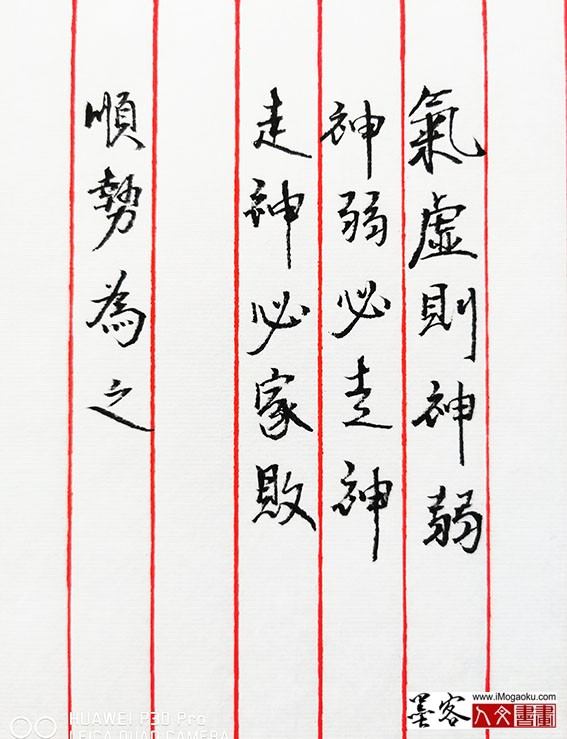 氣虛則神弱
神弱必走神
走神必家敗
順勢為之
HUAWEI P30 Pro
LEICA QUAD CAMERA
www.iMogaoku.com
墨客
人文書畫